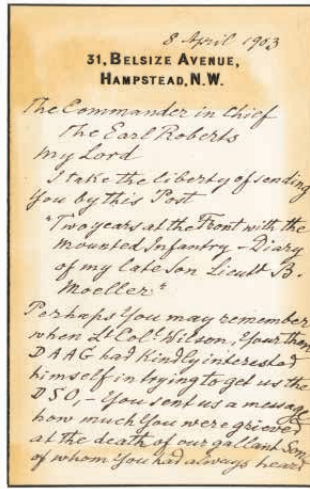 8 April 1903
31, BELSIZE AVENUE,
HAMPSTEAD, N.W.
The Commander in Chief
The Earl Roberts
My Lord
I take the liberty of sending
You by this Post
"Two years at the Front with the
Mounted Infantry - Diary
of my late Son Lieut B.
Moeller."
Perhaps You may remember
when Lt Col. Wilson, Your then
DAAG had kindly interested
himself in trying to get us the
DSO, - You sent us a message
how much You were grieved
at the death of our gallant Son,
of whom You had always heard